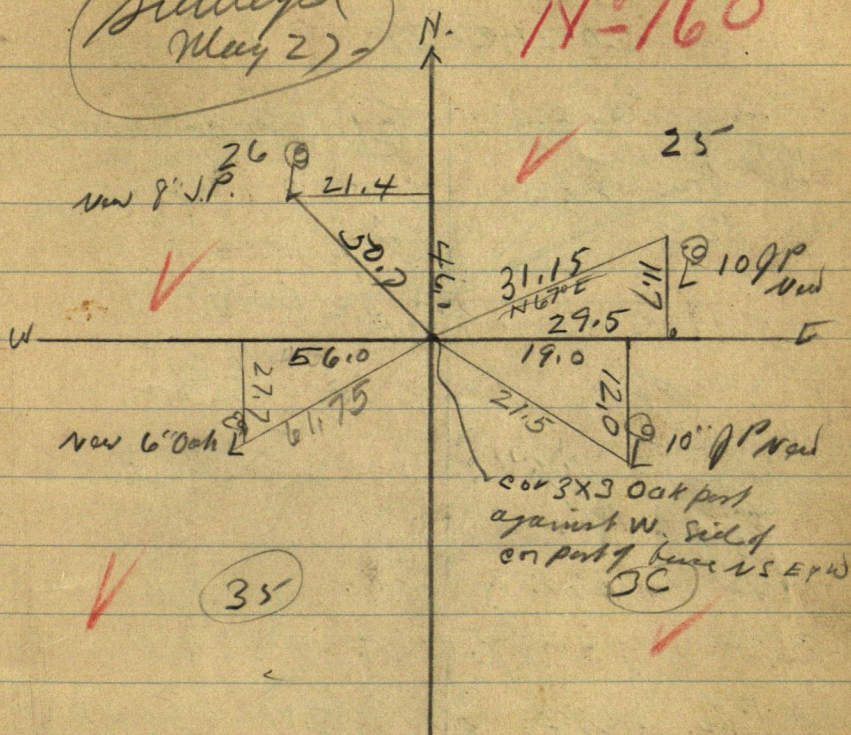 May 27
No 160
N.
26
25
New 8" J.P.
21.4
50.7
46.1
31.15
N 67° E
29.5
11.7
10 JP
New
W
E
56.0
19.0
27.7
61.75
New 6" Oak
21.5
12.0
10" JP New
cor 3X3 Oak post
against W. Side of
cor post of fence N S E & W
35
36